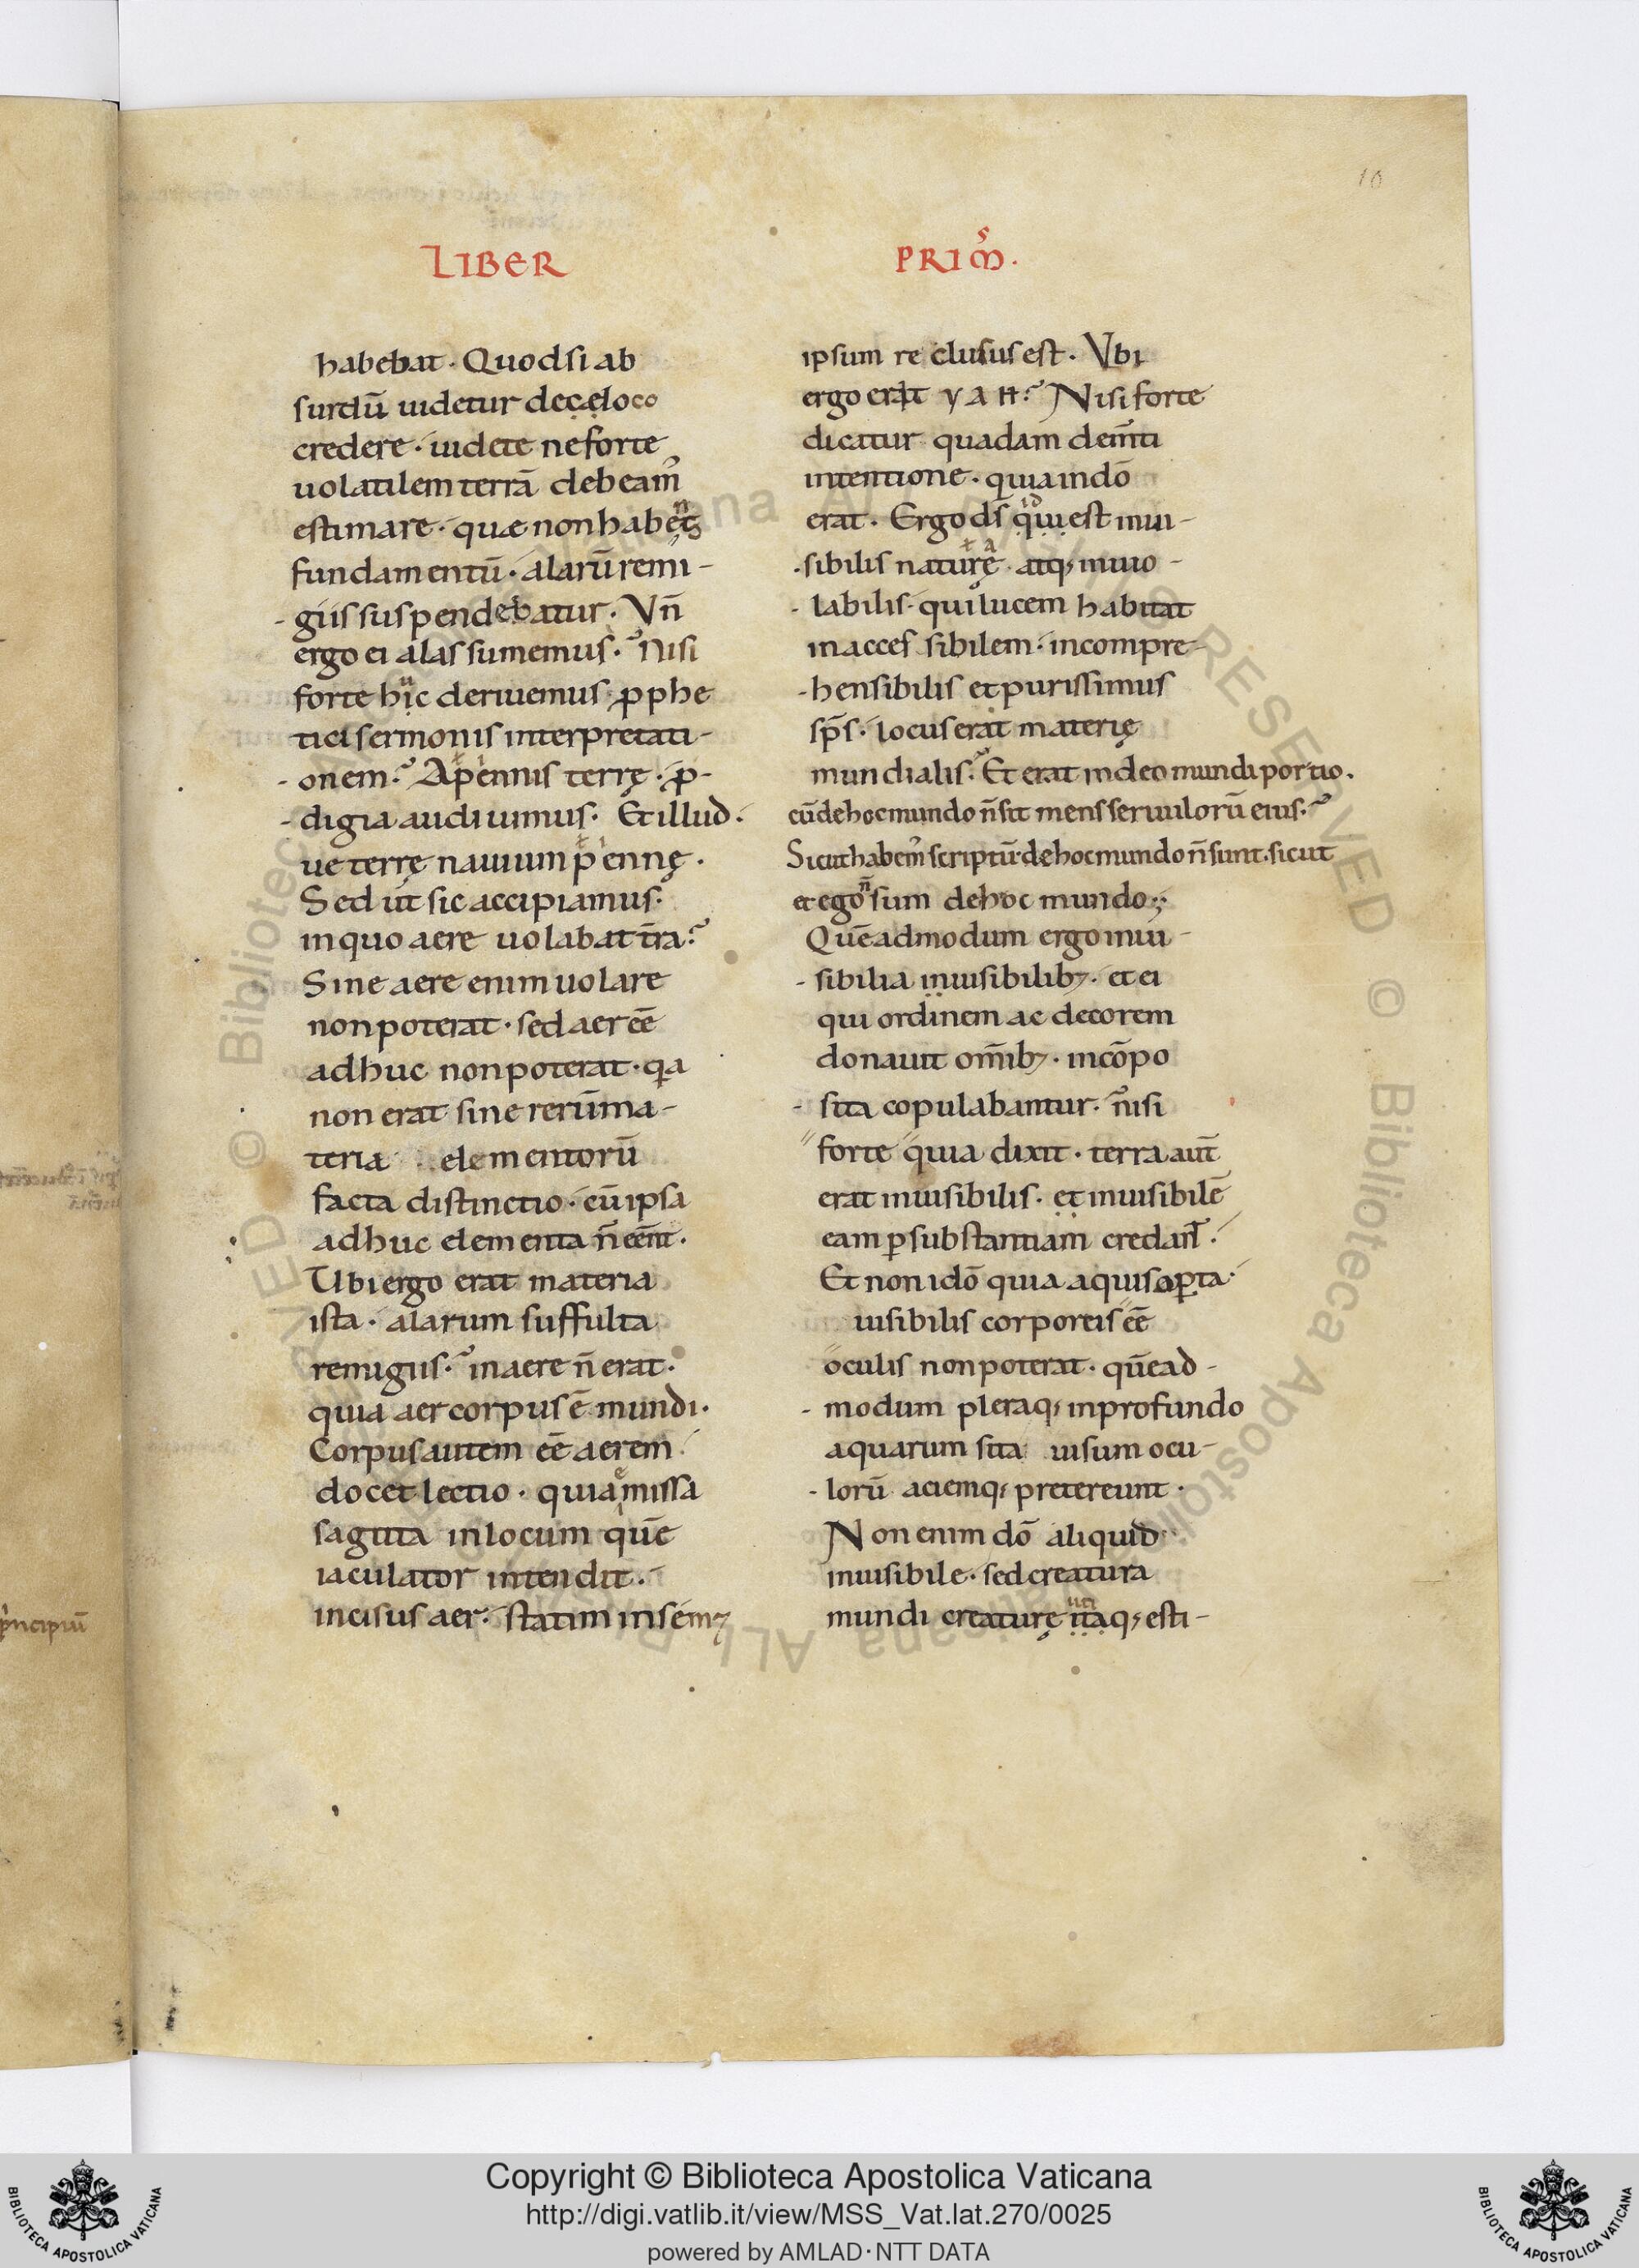 10
LIBER
habebat · Quodsi ab
surdū uidetur de cęlo co
credere · uidete ne forte
uolatilem terrā debeam᾽
estimare · quæ non habēs
fundamentū · alarū remi-
-giis suspendebatur · Vn̄
ergo ei alas sumemus · Nisi
forte huc deriuemus pphe
tici sermonis interpretati-
-onem · A pennis terrę · p-
-digia audiuimus · Et illud ·
ue terrę nauium pennę ·
Sed ut sic accipiamus ·
in quo aere uolabat tr̄a ·
Sine aere enim uolare
non poterat · sed aer eē
adhuc non poterat · qa
non erat sine rerū ma-
teria elementorū
facta distinctio · cū ipsa
adhuc elementa n̄ eēnt ·
Ubi ergo erat materia
ista · alarum suffulta
remigiis · in aere n̄ erat ·
quia aer corpus ē mundi ·
Corpus autem eē aerem
docet lectio · quia emissa
sagitta in locum quē
iaculator intendit ·
incisus aer · statim in sem&
PRIMᷤ ·
ipsum reclusus est · Vbi
ergo erat ΥΛΗ · Nisi forte
dicatur quadam dem̄ti
intentione · quia in dō
erat · Ergo ds̄ qui est inui-
·sibilis naturę · atq; inuio-
-labilis · qui lucem habitat
inaccessibilem · incompre-
-hensibilis et purissimus
sp̄s · locus erat materię
mundialis · Et erat in deo mundi portio ·
cū de hoc mundo n̄ sit mens seruulorū eius ·
Sicut habem᾽ scriptū · de hoc mundo n̄ sunt · sicut
et ego n̄ sum de hoc mundo ;
Quēadmodum ergo inui-
-sibilia inuisibilib; · et ei
qui ordinem ac decorem
donauit om̄ib; · incōpo
-sita copulabantur · nisi
forte quia dixit · terra aut̄
erat inuisibilis · et inuisibilē
eam p substantiam credant ·
Et non idō quia aquis opta ·
uisibilis corporeis eē
oculis non poterat · quēad-
-modum pleraq; in profundo
aquarum sita uisum ocu-
-lorū aciemq; pretereunt ·
Non enim dō aliquid
inuisibile · sed creatura
mundi creaturę itaq; esti-
p̄ncipiū
Copyright © Biblioteca Apostolica Vaticana
http://digi.vatlib.it/view/MSS_Vat.lat.270/0025
powered by AMLAD·NTT DATA
BIBLIOTECA APOSTOLICA VATICANA
BIBLIOTECA APOSTOLICA VATICANA